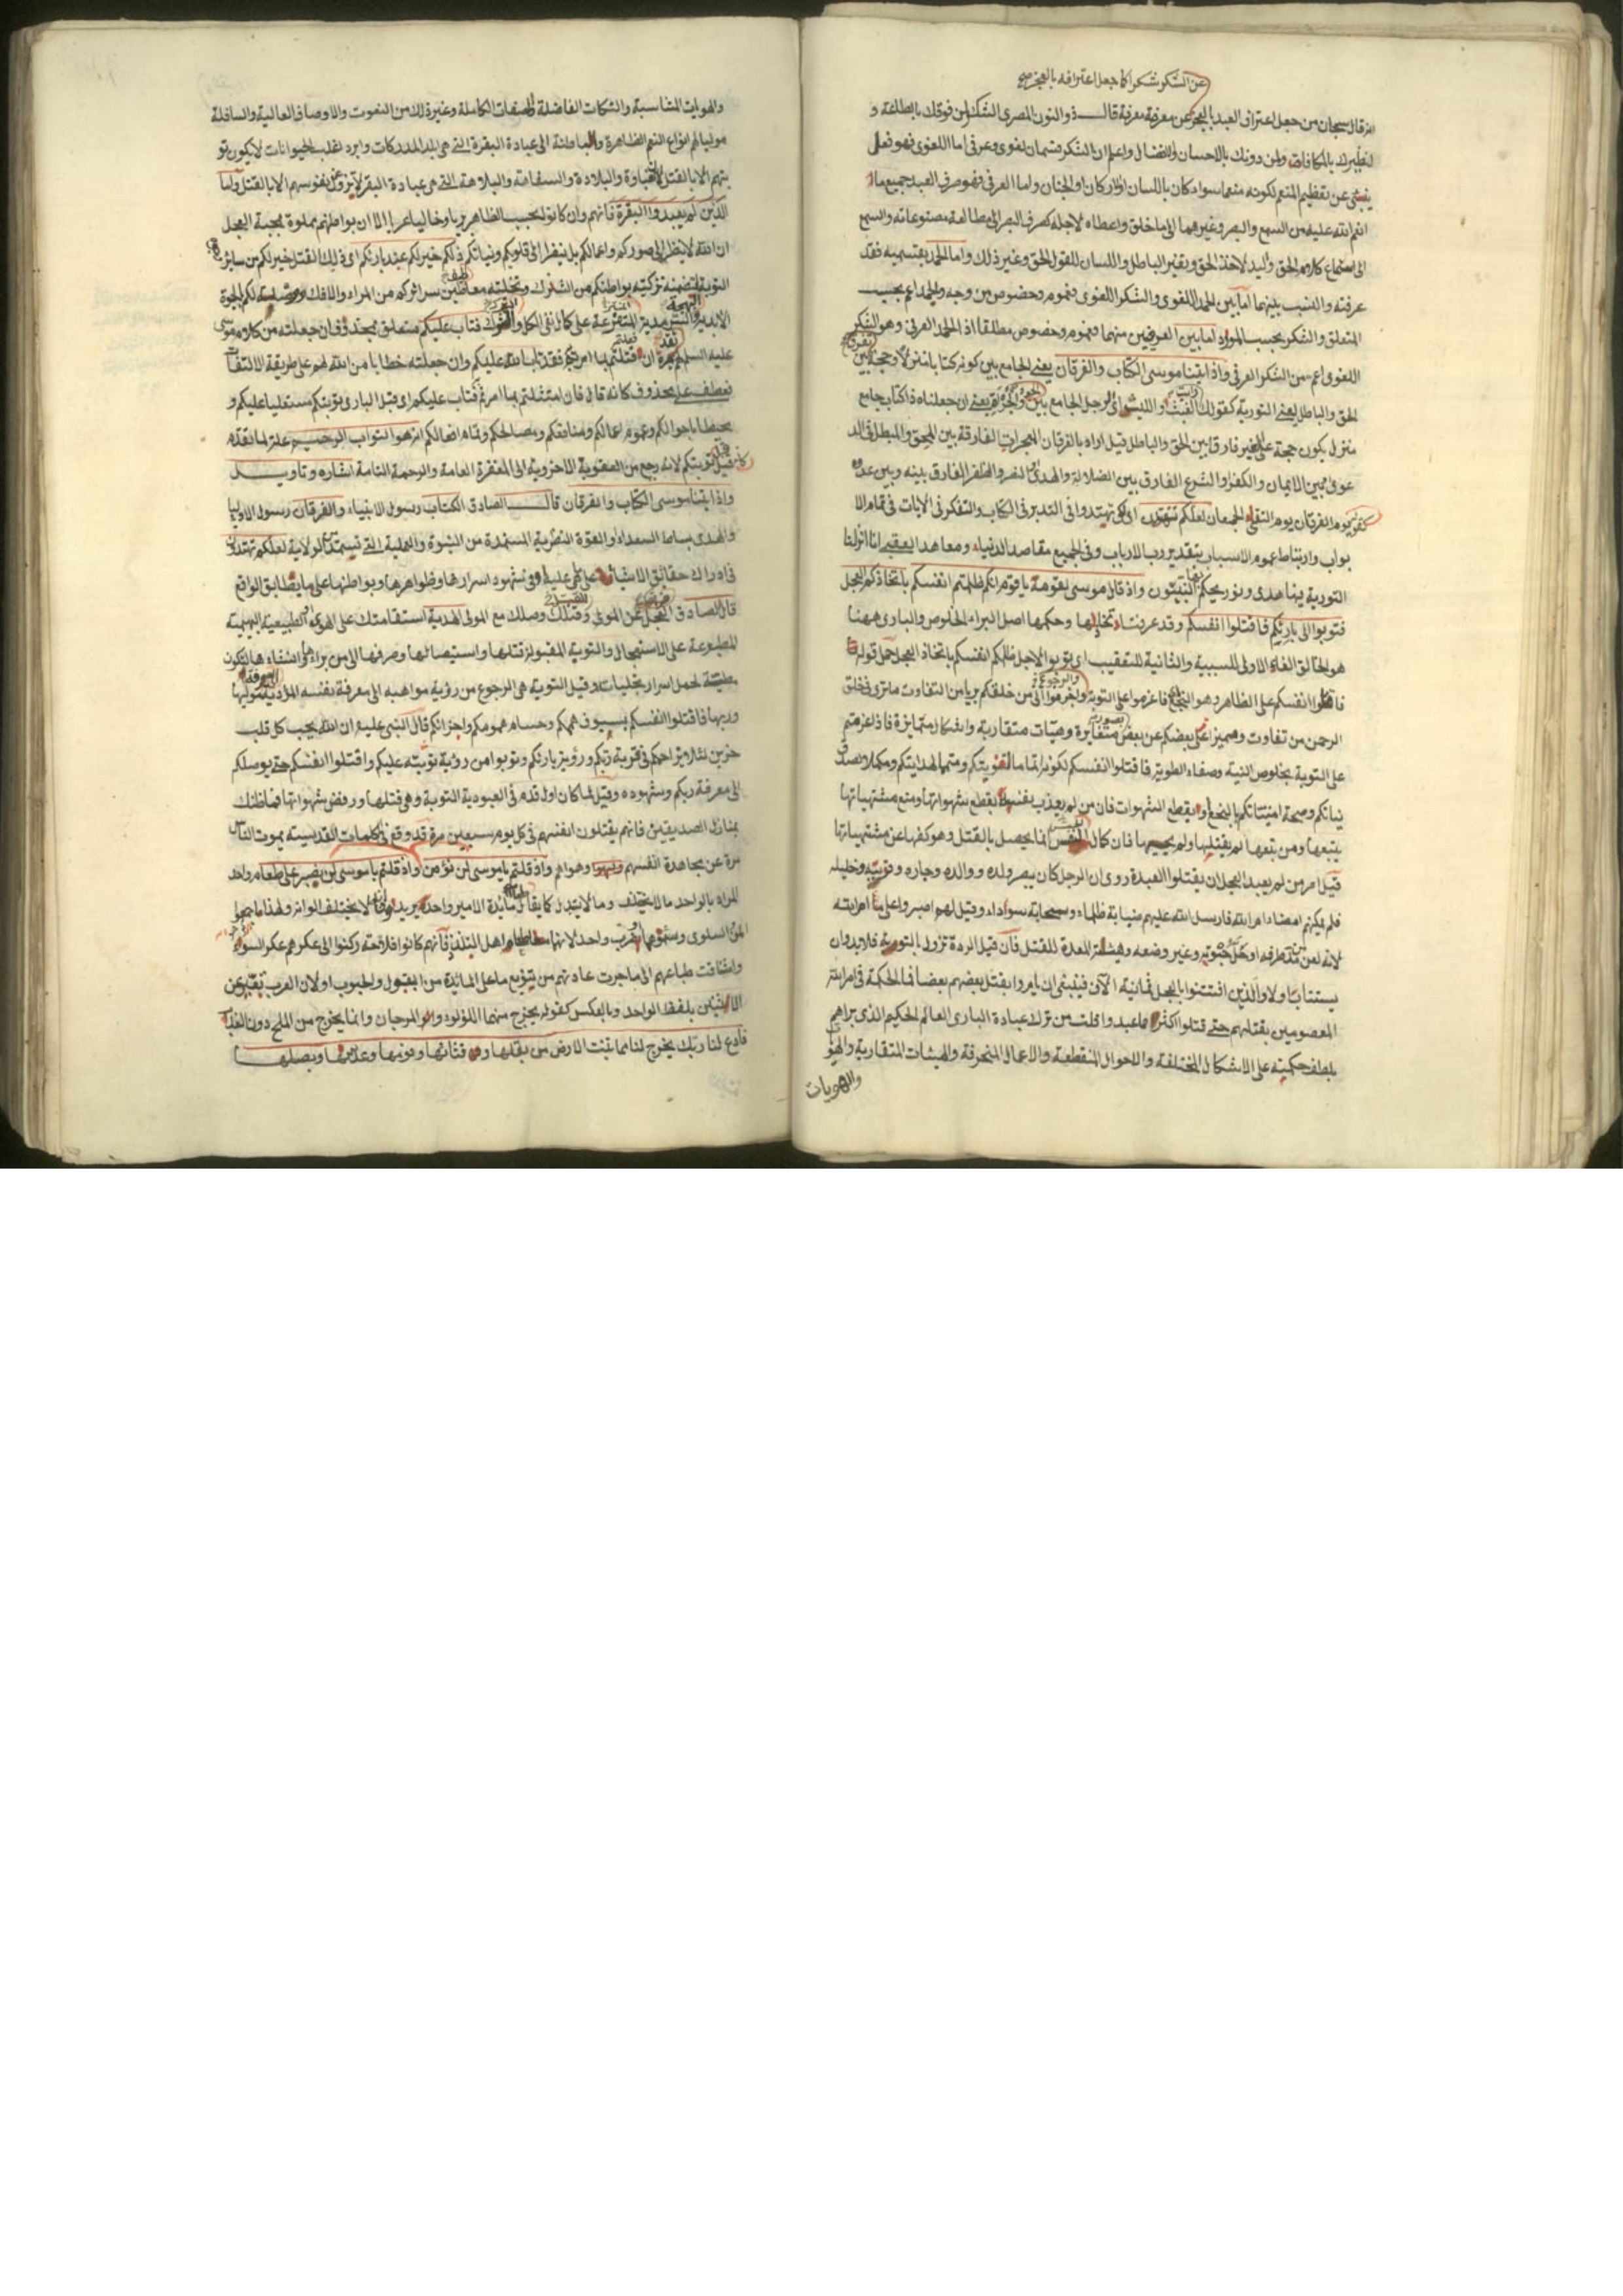 عن الشكر شكرا كما جعل اعترافه بالعجز صح
انه قال سبحان من جعل اعتراف العبد بالعجز عن معرفته معرفة قال ذو النون المصري الشكر لمن فوقك بالطاعة و
لنظيرك بالمكافات ولمن دونك بالاحسان والافضال واعلم ان الشكر قسمان لغوي وعرفي اما اللغوي فهو فعل
ينبئ عن تعظيم المنعم لكونه منعما سواء كان باللسان او الاركان او الجنان واما العرفي فهو صرف العبد جميع ما
انعم الله عليه من السمع والبصر وغيرهما الى ما خلق واعطاه لاجله كصرف البصر الى مطالعة مصنوعاته والسمع
الى استماع كلام الحق واليد لاخذ الحق وتغيير الباطل واللسان للقول الحق وغير ذلك واما الحمد بقسميه فقد
عرفته والنسب بينهما اما بين الحمد اللغوي والشكر اللغوي فعموم وخصوص من وجه والحمد اعم بحسب
المتعلق والشكر بحسب الموارد اما بين العرفيين منهما فعموم وخصوص مطلقا اذ الحمد العرفي وهو الشكر
اللغوي اعم من الشكر العرفي واذ اتينا موسى الكتاب والفرقان يعني الجامع بين كونه كتابا منزلا وحجة بين
الحق والباطل يعني التورية كقولك الغيث والليث اي الرجل الجامع بين
منزل يكون حجة على الخير فارقا بين الحق والباطل قيل اراد بالفرقان المعجزات الفارقة بين المحق والمبطل في الد
عوى وبين الايمان والكفر او الشرع الفارق بين الضلالة والهدى او النصر والظفر الفارق بينه وبين عدوه
كقوله يوم الفرقان يوم التقى الجمعان لعلكم تهتدون اي لكي تهتدوا في التدبر في الكتاب والتفكر في الايات في تمام الا
بواب وارتباط عموم الاسباب بتقدير رب الارباب وفي الجميع مقاصد الدنياء ومعاهد العقبى انا انزلنا
التورية فيها هدى ونور يحكم بها النبيون واذ قال موسى لقومه يا قوم انكم ظلمتم انفسكم باتخاذكم العجل
فتوبوا الى بارئكم فاقتلوا انفسكم وقد عرفت وحكمها اصل البراء الخلوص والباري ههنا
هو الخالق الفاء الاولى للسببية والثانية للتعقيب اي توبوا لاجل ظلمكم انفسكم باتخاذ العجل حمل قوله
فاقتلوا انفسكم على الظاهر وهو البخع فاعزموا على التوبة والرجوع الى من خلقكم بريا من التفاوت ما ترى في خلق
الرحمن من تفاوت ومميزا بعضكم عن بعض بصورة متغايرة وهيئات متقاربة واشكال متمايزة فاذا عزمتم
على التوبة بخلوص النية وصفاء الطوية فاقتلوا انفسكم لكونه اتماما لتوبتكم ومتمما لهدايتكم ومكملا وصدق
نياتكم وصحة امنيتكم بالبخع او بقطع الشهوات فان من لم يعذب نفسه بقطع شهواتها ومنع مشتهياتها
يتبعها ومن يتبعها لم يقتلها ولم يحييها فان كمال النفس انما يحصل بالقتل وهو كفها عن مشتهياتها
قيل امر من لم يعبد العجل ان يقتلوا العبدة روي ان الرجل كان يبصر ولده ووالده وجاره وقريبه وخليله
فلم يمكنهم امضاء امر الله فارسل الله عليهم ضبابة ظلماء وسحابة سوداء وقيل لهم اصبروا على ما امر الله
لانه لعن من مد طرفه او حل حبوته وغير وضعه وهيئته المعدة للقتل فان قيل الردة تزول بالتوبة فلا بد وان
يستتاب اولا والذين افتتنوا بالعجل ثمانية الاف فينبغي ان يامروا بقتل بعضهم بعضا فما الحكمة في امر الله
المعصومين بقتلهم حتى قتلوا اكثر ما عبدوا قلت من ترك عبادة الباري العالم الحكيم الذي براهم
بلطف حكمته على الاشكال المختلفة والاحوال المنقطعة والاعمال المنحرفة والهيئات المتقاربة والهو
والهويات
والهويات المتناسبة والملكات الفاضلة والصفات الكاملة وغير ذلك من النعوت والاوصاف العالية والسافلة
موليا لهم انواع النعم الظاهرة والباطنة الى عبادة البقرة التي هي ابلد المدركات وابرد اغلب الحيوانات لا يكون تو
بتهم الا بالقتل لان الغباوة والبلادة والسفاهة والبلاهة التي هي عبادة البقر لا تزول عن نفوسهم الا بالقتل واما
الذين لم يعبدوا البقرة فانهم وان كانوا بحسب الظاهر بريا وخاليا عربا الا ان بواطنهم مملوة بمحبة العجل
ان الله لا ينظر الى صوركم واعمالكم بل ينظر الى قلوبكم ونياتكم ذلكم خير لكم عند بارئكم اي ذلك القتل خير لكم من سائر
التوبة المتضمنة تزكية بواطنكم من الشرك وتخلية سرائركم من المراء والافك لكم الحيوة
الابدية فتاب عليكم متعلق بمحذوف فان جعلته من كلام موسى
عليه السلم فعلتم بما امرتم فقد تاب الله عليكم وان جعلته خطابا من الله لهم على طريقة الالتفات
تعطف على محذوف كانه قال فان امتثلتم بما امرتم فتاب عليكم اي قبل الباري توبتكم مستعليا عليكم و
محيطا باحوالكم وعموم اعمالكم ومنافعكم ومصالحكم وتمام افعالكم انه هو التواب الرحيم علة لما تقدم
قبل توبتكم لانه رجع من العقوبة الاخروية الى المغفرة العامة والرحمة التامة اشارة وتاويل
واذ اتينا موسى الكتاب والفرقان قال الصادق الكتاب رسول الانبياء والفرقان رسول الاوليا
والهدى بساط السعداء او القوة النظرية المستمدة من النبوة والعملية التي تستمد الولاية لعلكم تهتدون
في ادراك حقائق الاشياء على ما هي عليها وفي شهود اسرارها وظواهرها وبواطنها على ما يطابق الواقع
قال الصادق العجل عن المولى وقتلك وصلك مع المولى الهدية استقامتك على الهوى الطبيعية البهيمية
المطبوعة على الاستعجال والتوبة المقبولة قتلها واستيصالها وصرفها الى من براها وانشاءها لتكون
مطيعة لحمل اسرار تجليات وقيل التوبة هي الرجوع من رؤية مواهبه الى معرفة نفسه
وربها فاقتلوا انفسكم بسيوف همكم وحسام همومكم واحزانكم قال النبي عليه ان الله يحب كل قلب
حزين لئلا يزاحمكم في قربة ربكم ورؤية بارئكم وتوبوا من رؤية توبته عليكم واقتلوا انفسكم حتى يوصلكم
الى معرفة ربكم وشهوده وقيل لما كان اول قدم في العبودية التوبة وهي قتلها ورفض شهواتها فما ظنك
بمنازل الصديقين فانهم يقتلون انفسهم في كل يوم سبعين مرة قد وقع في الكلمات القدسية يموت الناس
مرة عن مجاهدة انفسهم وهواهم واذ قلتم يا موسى لن نؤمن واذ قلتم يا موسى لن نصبر على طعام واحد
المراد بالواحد ما لا يختلف وما لا يتبدل كما يقال مائدة الامير واحد يريد انها لا يختلف الوانه ولهذا ما
المن والسلوى واحد لانها اهل التلذذ فانهم كانوا فلاحة ركنوا الى عكرهم عكر السوء
واشتاقت طباعهم الى ما جرت عادتهم من تنويع ما على المائدة من البقول والحبوب او لان العرب تعبر عن
الاثنين بلفظ الواحد وبالعكس كقوله يخرج منهما اللؤلؤ والمرجان وانما يخرج من الملح دون العذب
فادع لنا ربك يخرج لنا مما تنبت الارض من بقلها وقثائها وفومها وعدسها وبصلها